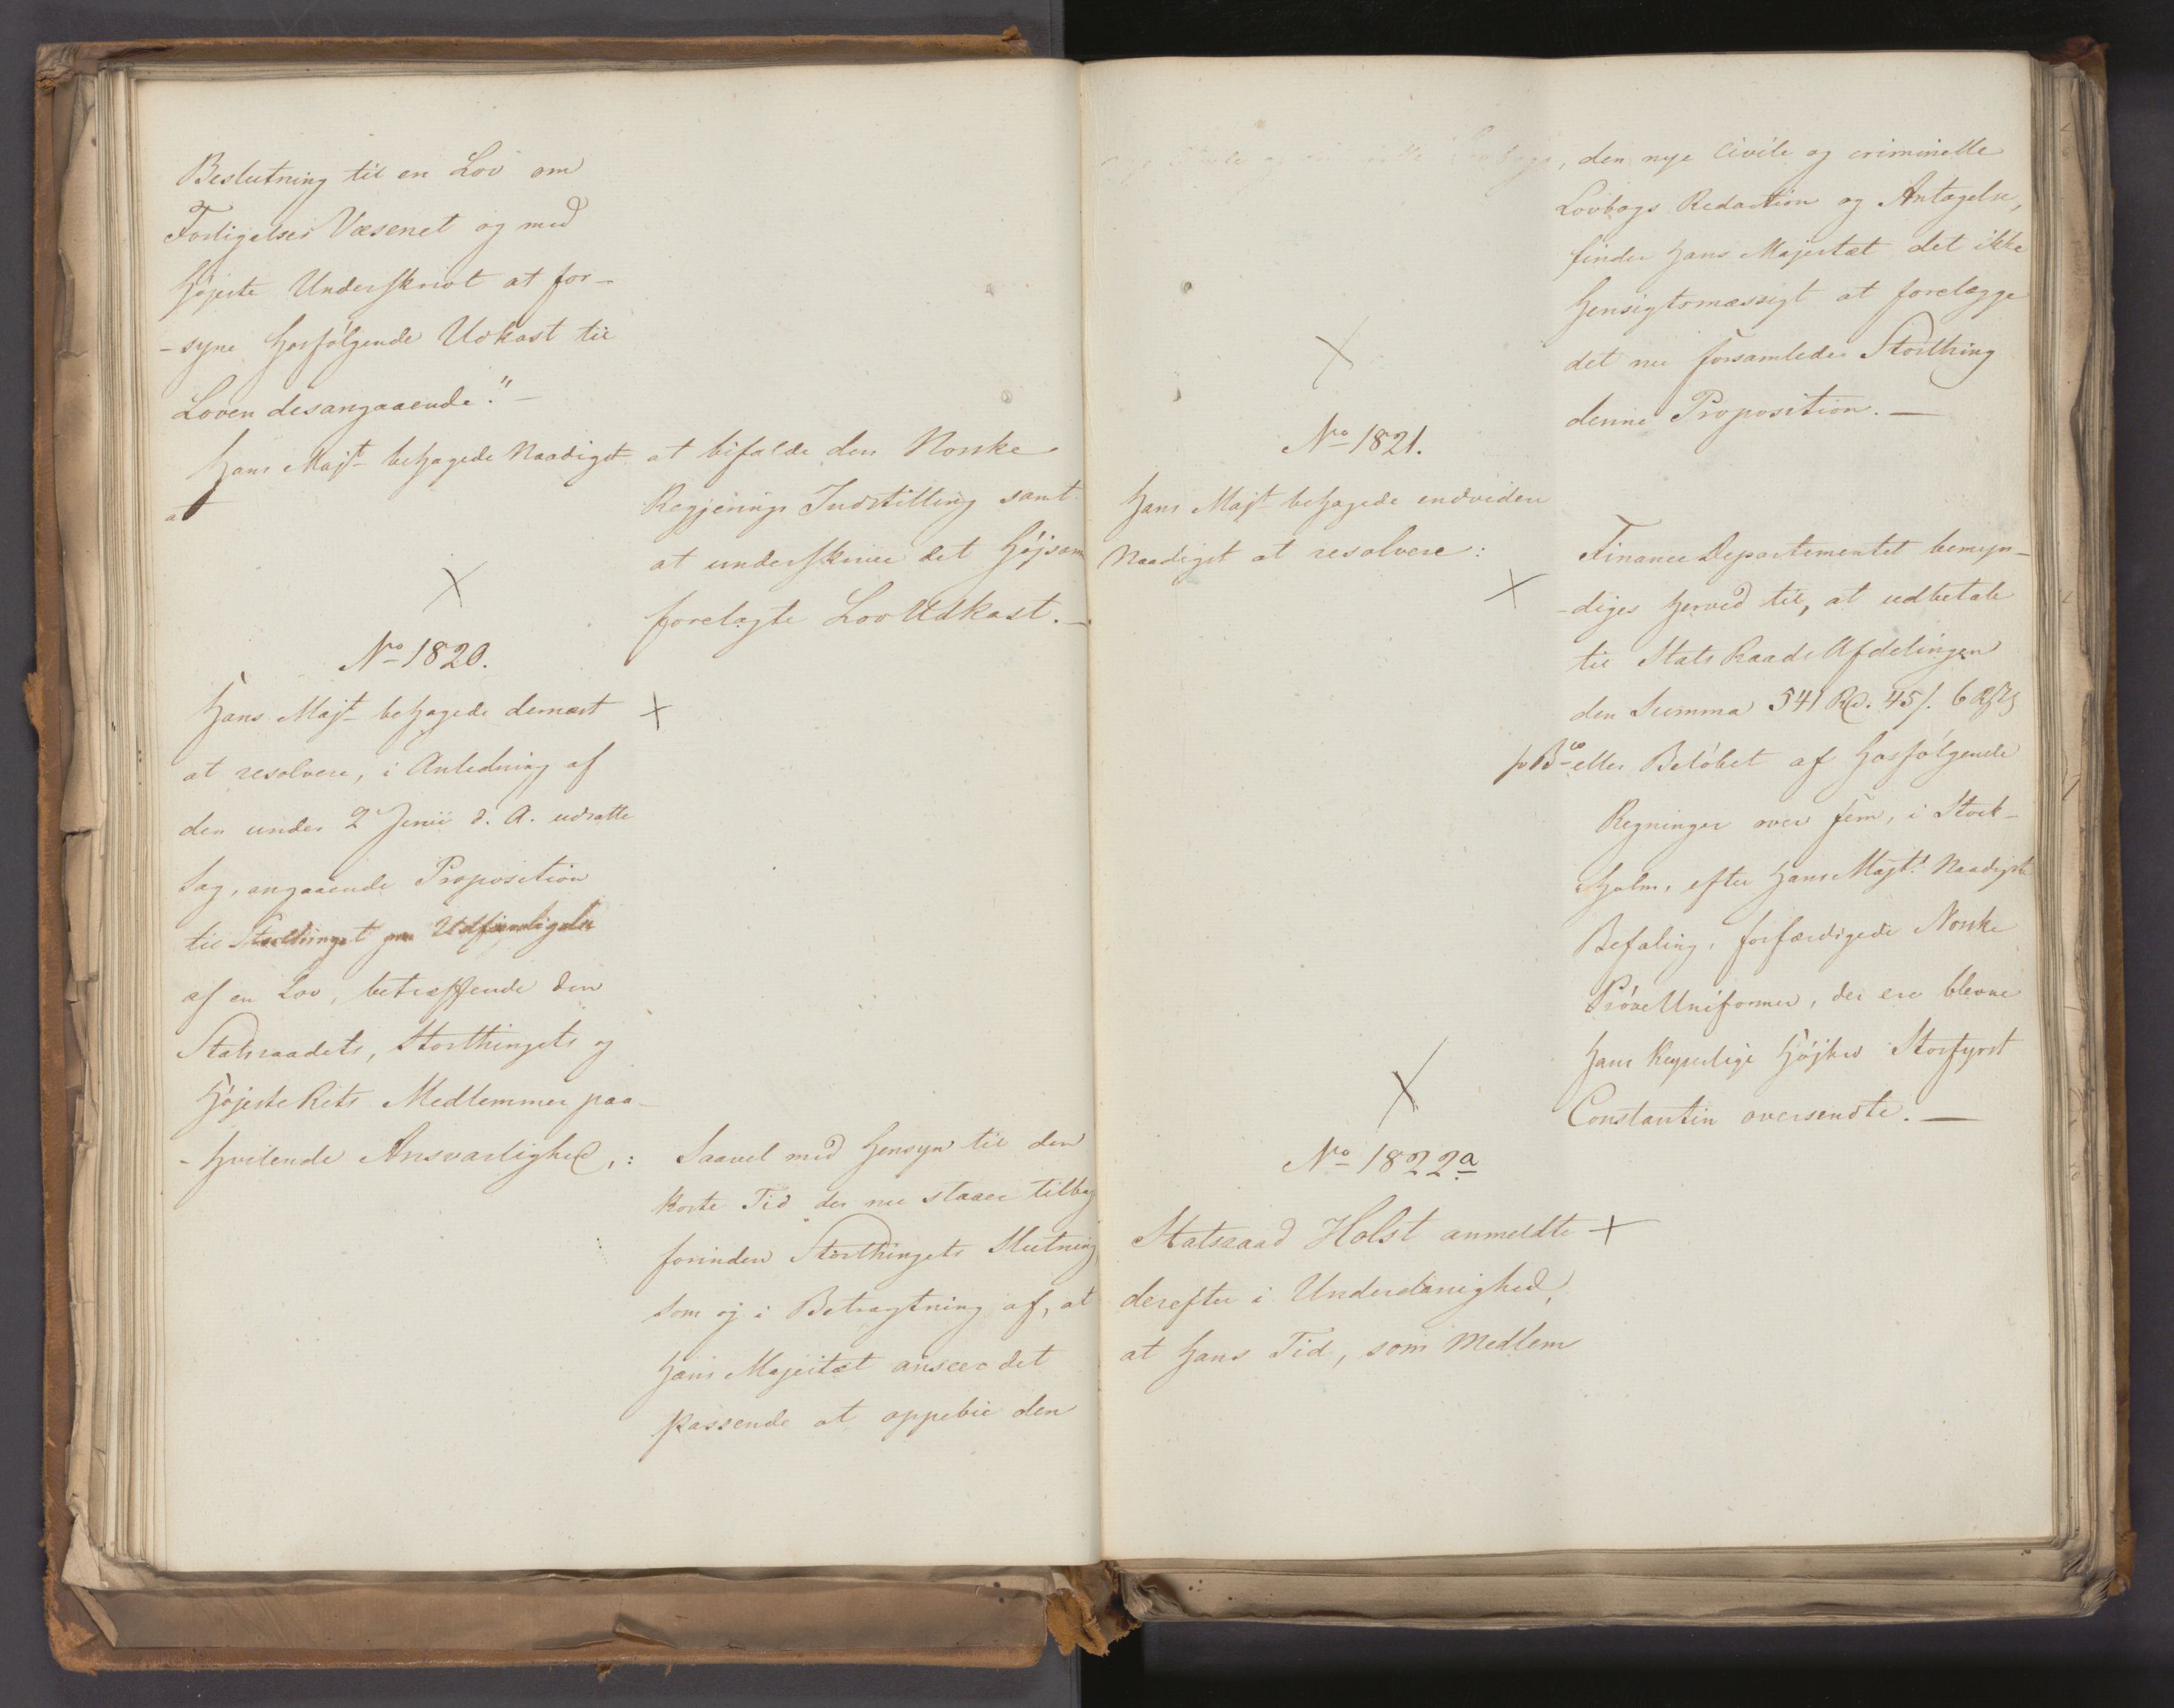 Beslutning til en Lov om
Forligelses Væsenet og med
Højeste Underskrivt at for-
-syne hosfølgende Udkast til
Loven desangaaende." -
Hans Majt behagede Naadigst
at
at bifalde den Norske
Regjerings Indstilling samt
at underskrive det Højsam
forelagte Lov Udkast. -
No 1820.
Hans Majt behagede demæst
at resolvere, i Anledning af
den under 2 Junii d. A. udsatte
Sag, angaaende Proposition
til Storthinget om Udfærdigelse
af en Lov, betræffende den
Statsraadets, Storthingets og
Højeste Rets Medlemmer paa-
-hvilende Ansvarlighed, :
Saavel med Hensyn til den
korte Tid der nu staaer tilbag
forinden Storthingets Slutning,
som og i Betragtning af, at
Hans Majestæt anseer det
passende at oppebie den
, den nye Civile og criminelle
Lovbogs Redaction og Antagelse,
finder Hans Majestæt det ikke
hensigtsmæssigt at forelægge
det nu forsamlede Storthing
denne Proposition. -
No 1821.
Hans Majt behagede endvidere
Naadigst at resolvere :
Finance Departementet bemyn-
-diges herved til, at udbetale
til Stats Raads Afdelingen
den Summa 541 Rd. 45 s. 6
p Bco eller Beløbet af hosfølgende
Regninger over fem, i Stock-
holm, efter Hans Majts Naadigste
Befaling, forfærdigede Norske
Prøve Uniformer, der ere blevne
Hans Keyserlige Højhed Storfyrst
Constantin oversendte. -
No 1822 a
Statsraad Holst anmeldte
derefter i Underdanighed,
at hans Tid, som Medlem